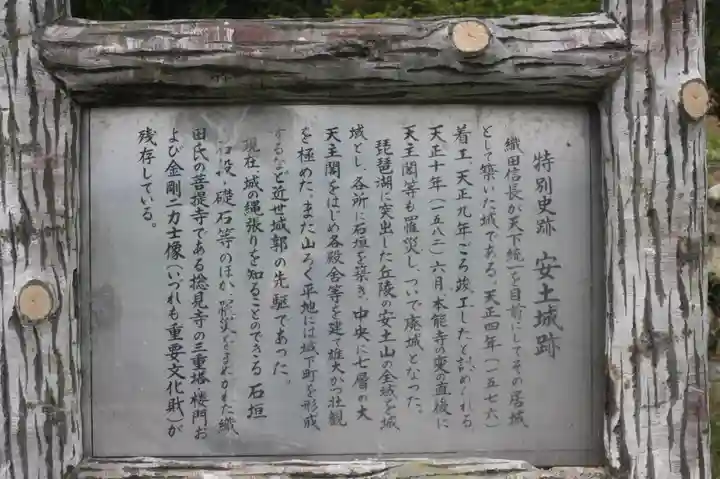 特別史跡 安土城跡
織田信長が天下統一を目前にしてその居城
として築いた城である。天正四年(一五七六)
着工、天正九年ごろ竣工したと認められる。
天正十年(一五八二)六月、本能寺の変の直後に
天主閣等も罹災し、ついで廃城となった。
琵琶湖に突出した丘陵の安土山の全域を城
域とし、各所に石垣を築き、中央に七層の大
天主閣をはじめ各殿舎等を建て雄大かつ壮観
を極めた。また山ろく平地には城下町を形成
するなど近世城郭の先駆であった。
現在、城の縄張りを知ることのできる石垣
石段、礎石等のほか、罹災をまぬかれた織
田氏の菩提寺である捴見寺の三重塔、楼門お
よび金剛二力士像(いづれも重要文化財)が
残存している。